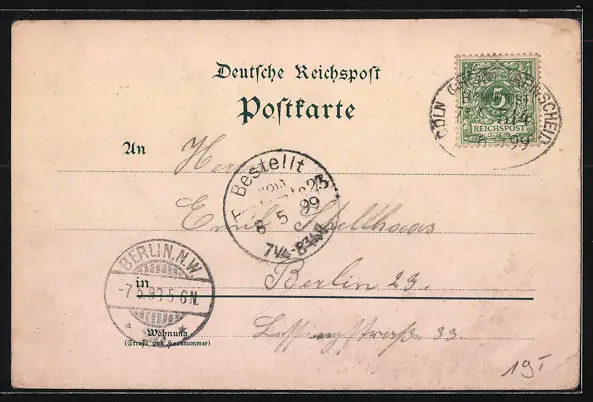 Deutsche Reichspost
Postkarte
5
REICHSPOST
CÖLN
99
An Herrn
Bestellt
vom
8 5 99
7¼-8¼V
Emil Schellhaas
BERLIN.N.W.
-7.5.99.5-6N.
in Berlin 23.
Wohnung
(Straße und Hausnummer)
Lessingstraße 33.